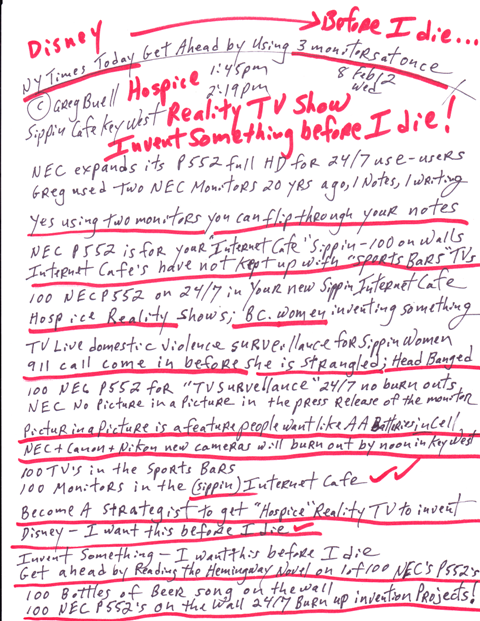 Disney → Before I die...
NY Times Today Get Ahead by Using 3 monitors at once
© Greg Buell Hospice 1:45pm 8 Feb 12
2:19pm Wed
Sippin Cafe Key West Reality TV Show
Invent Something before I die!
NEC expands its P552 full HD for 24/7 use-users
Greg used two NEC Monitors 20 yrs ago, 1 Notes, 1 writing
Yes using two monitors you can flip through your notes
NEC P552 is for your "Internet Cafe" Sippin-100 on walls
Internet Cafe's have not kept up with "Sports Bars" TVs
100 NEC P552 on 24/7 in your new Sippin Internet Cafe
Hospice Reality Shows; BC. women inventing something
TV Live domestic violence surveillance for Sippin Women
911 call come in before she is strangled; Head Banged
100 NEC P552 for "TV Survellance" 24/7 no burn outs,
NEC No Picture in a Picture in the press release of the monitor
Picture in a Picture is a feature people want like AA Batteries in Cell!
NEC+Canon+Nikon new cameras will burn out by noon in Key West
100 TV's in the Sports Bars
100 Monitors in the (sippin) Internet Cafe
Become A Strategist to get "Hospice" Reality TV to invent
Disney - I want this before I die
Invent Something - I want this before I die
Get ahead by Reading the Hemingway Novel on 1 of 100 NEC's P552's
100 Bottles of Beer song on the wall
100 NEC P552's on the Wall 24/7 Burn up invention Projects!